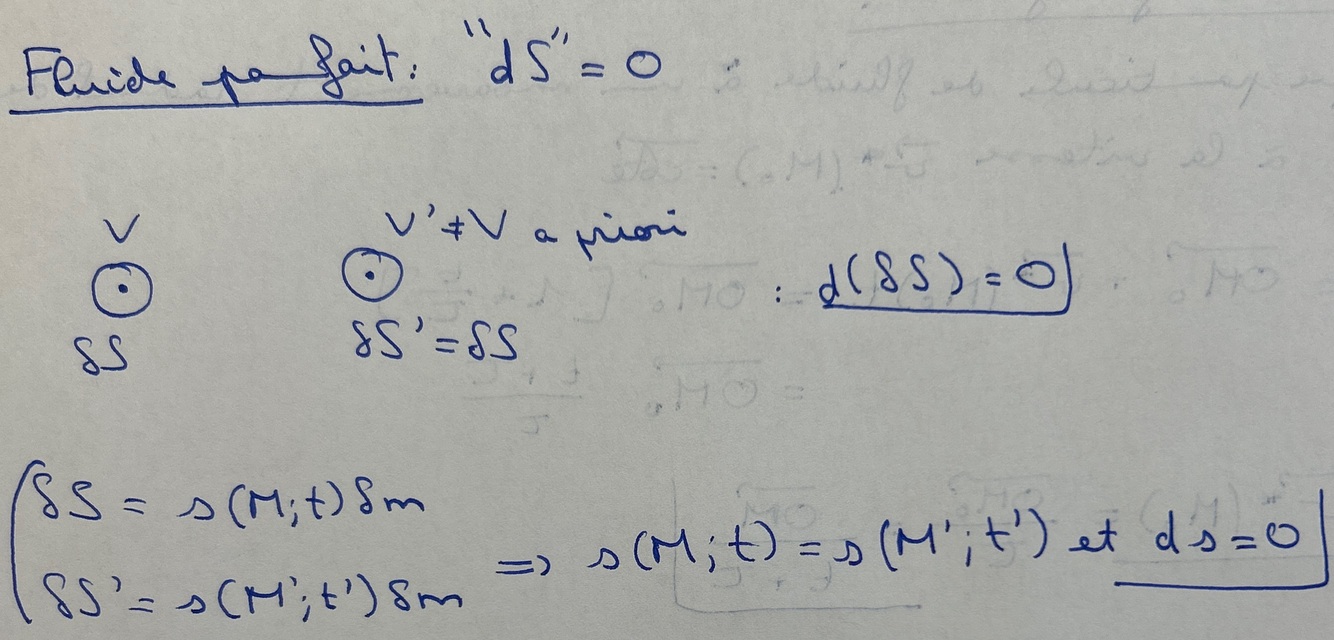 Fluide parfait: "dS" = 0 :
V V' ≠ V a priori
δS δS' = δS : d(δS) = 0
δS = s(M;t)δm
δS' = s(M';t')δm => s(M;t) = s(M';t') et ds = 0